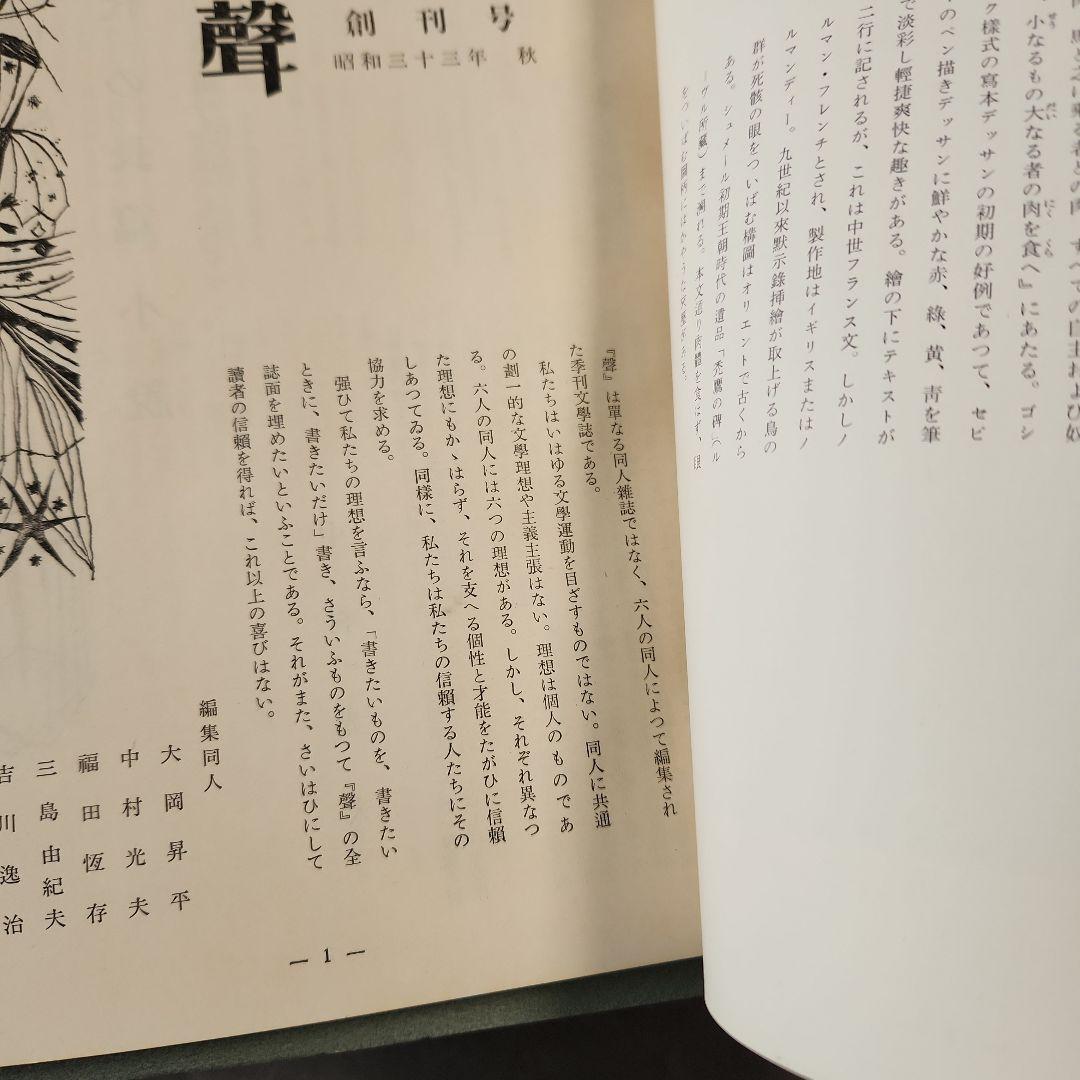 小なるもの大なる者の肉を食へ』にあたる。ゴシ
ク様式の寫本デッサンの初期の好例であつて、セピ
のペン描きデッサンに鮮やかな赤、綠、黃、靑を筆
で淡彩し輕捷爽快な趣きがある。繪の下にテキストが
二行に記されるが、これは中世フランス文。しかしノ
ルマン・フレンチとされ、製作地はイギリスまたはノ
ルマンディー。九世紀以來默示錄挿繪が取上げる鳥の
群が死骸の眼をついばむ構圖はオリエントで古くから
ある。シュメール初期王朝時代の遺品「禿鷹の碑」(ル
ーヴル所藏)まで溯れる。本文通り肉體を食はず、眼
聲
創刊号
昭和三十三年 秋
『聲』は單なる同人雜誌ではなく、六人の同人によつて編集され
た季刊文學誌である。
私たちはいはゆる文學運動を目ざすものではない。同人に共通
の劃一的な文學理想や主義主張はない。理想は個人のものであ
る。六人の同人には六つの理想がある。しかし、それぞれ異なつ
た理想にもかゝはらず、それを支へる個性と才能をたがひに信賴
しあつてゐる。同樣に、私たちは私たちの信賴する人たちにその
協力を求める。
强ひて私たちの理想を言ふなら、「書きたいものを、書きたい
ときに、書きたいだけ」書き、さういふものをもつて『聲』の全
誌面を埋めたいといふことである。それがまた、さいはひにして
讀者の信賴を得れば、これ以上の喜びはない。
編集同人
大岡昇平
中村光夫
福田恆存
三島由紀夫
吉川逸治
— 1 —